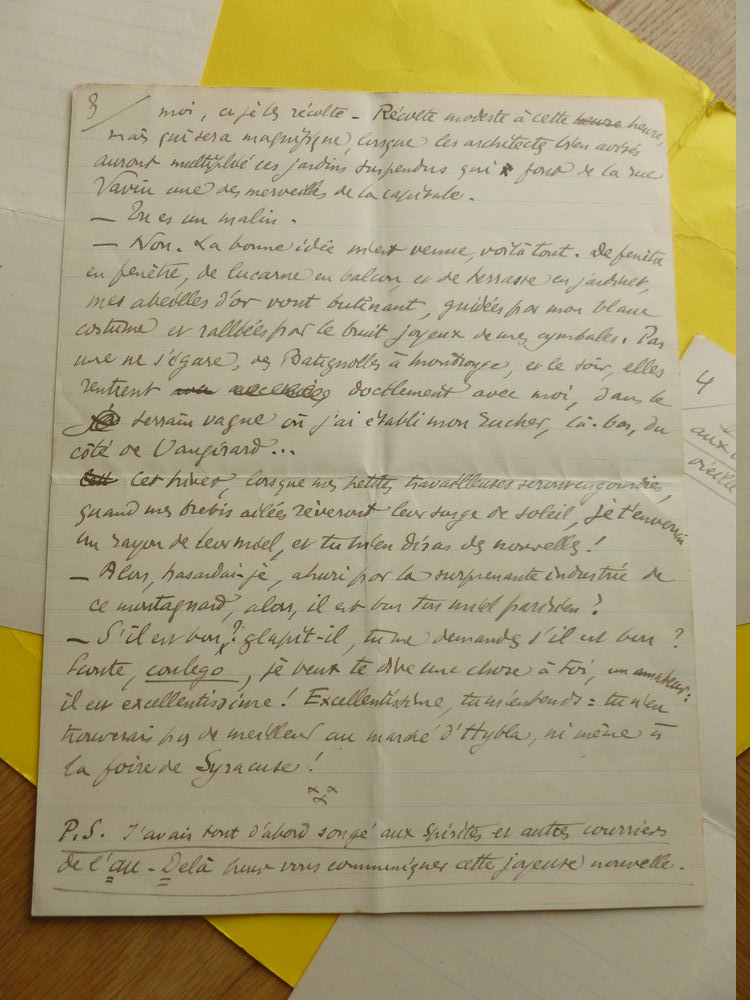 3/ moi, et je les récolte - Récolte modeste à cette heure heure,
mais qui sera magnifique, lorsque les architectes bien avisés
auront multiplié ces jardins suspendus qui font de la rue
Vavin une des merveilles de la capitale.
— Tu es un malin.
— Non. La bonne idée m'est venue, voilà tout. De fenêtre
en fenêtre, de lucarne en balcon, et de terrasse en jardinet,
mes abeilles d'or vont butinant, guidées par mon blanc
costume et ralliées par le bruit joyeux de mes cymbales. Pas
une ne s'égare, des Batignolles à Montrouge, et le soir, elles
rentrent docilement avec moi, dans le
terrain vague où j'ai établi mon rucher, là-bas, du
côté de Vaugirard...
Cet hiver, lorsque mes petites travailleuses seront engourdies,
quand mes brebis ailées rêveront leur songe de soleil, je t'enverrai
un rayon de leur miel, et tu m'en diras des nouvelles !
— Alors, hasardai-je, ahuri par la surprenante industrie de
ce montagnard, alors, il est bon ton miel parisien ?
— S'il est bon ? glapit-il, tu me demandes s'il est bon ?
Écoute, coulego, je veux te dire une chose à toi, un amateur :
il est excellentissime ! Excellentissime, tu m'entends : tu n'en
trouverais pas de meilleur au marché d'Hybla, ni même à
la foire de Syracuse !
P.S. J'avais tout d'abord songé aux Spirites et autres courriers
de l'au-Delà pour vous communiquer cette joyeuse nouvelle.
4
aux
vieille